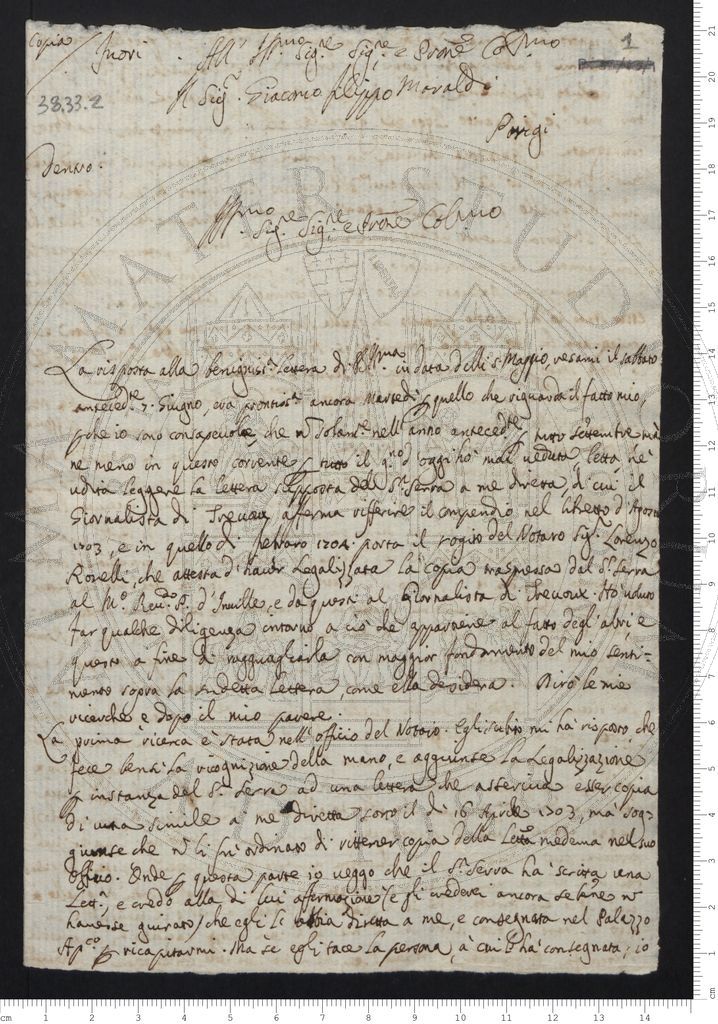 Copia
1
Fuori. All' Ill.mo Sig.re Sig.re e Pron.e Col.mo
38.33.2
Il Sig.r Giacomo Filippo Maraldi
Parigi
Dentro.
Ill.mo Sig.re Sig.re e Pron.e Col.mo
La risposta alla benigniss.a lettera di V.S. Ill.ma in data delli Maggio, resami il sabbato
anteced.te 7 Giugno, era prontiss.a ancora Martedì quello che riguarda il fatto mio,
io sono consapevole, che nell'anno anteced.te, tutto settembre
ne meno in questo corrente tutto il d'oggi hò mai veduta, letta, nè
udita leggere la lettera supposta del S.r Serra a me diretta, di cui il
Giornalista di Trevoux afferma rifferire il compendio nel libretto d'Agosto
1703, e in quello di Febraro 1704 porta il rogito del Notaro Sig.r Lorenzo
Ronelli, che attesta d'haver Legalizzata la copia trasmessa dal S.r Serra
al M.o Rev.do P. d'Inville, e da questi al Giornalista di Trevoux. Hò voluto
far qualche diligenza intorno a ciò che appartiene al fatto degl'altri, e
questo a fine di ragguagliarla con maggior fondamento del mio senti-
mento sopra la sudetta lettera, come ella desidera. Dirò le mie
ricerche e dopo il mio parere.
La prima ricerca è stata nell'officio del Notaio. Egli subito mi hà risposto che
fece bensì la ricognizione della mano, e aggiunse la Legalizzazione
instanza del S.r Serra ad una lettera che asseriva esser copia
di una simile a me diretta sotto il dì 16 Aprile 1703, mà sog-
giunse che li fù ordinato di ritener copia della Lett.a medema nel suo
officio. Onde questa parte io veggo che il S.r Serra hà scritta una
Lett.a, e credo alla di lui affermazione (e gli crederei ancora se
havesse giurato) che egli l'abbia diretta a me, e consegnata nel Palazzo
Ap.co ricapitarmi. Ma se egli tace la persona, à cui l'hà consegnata, io